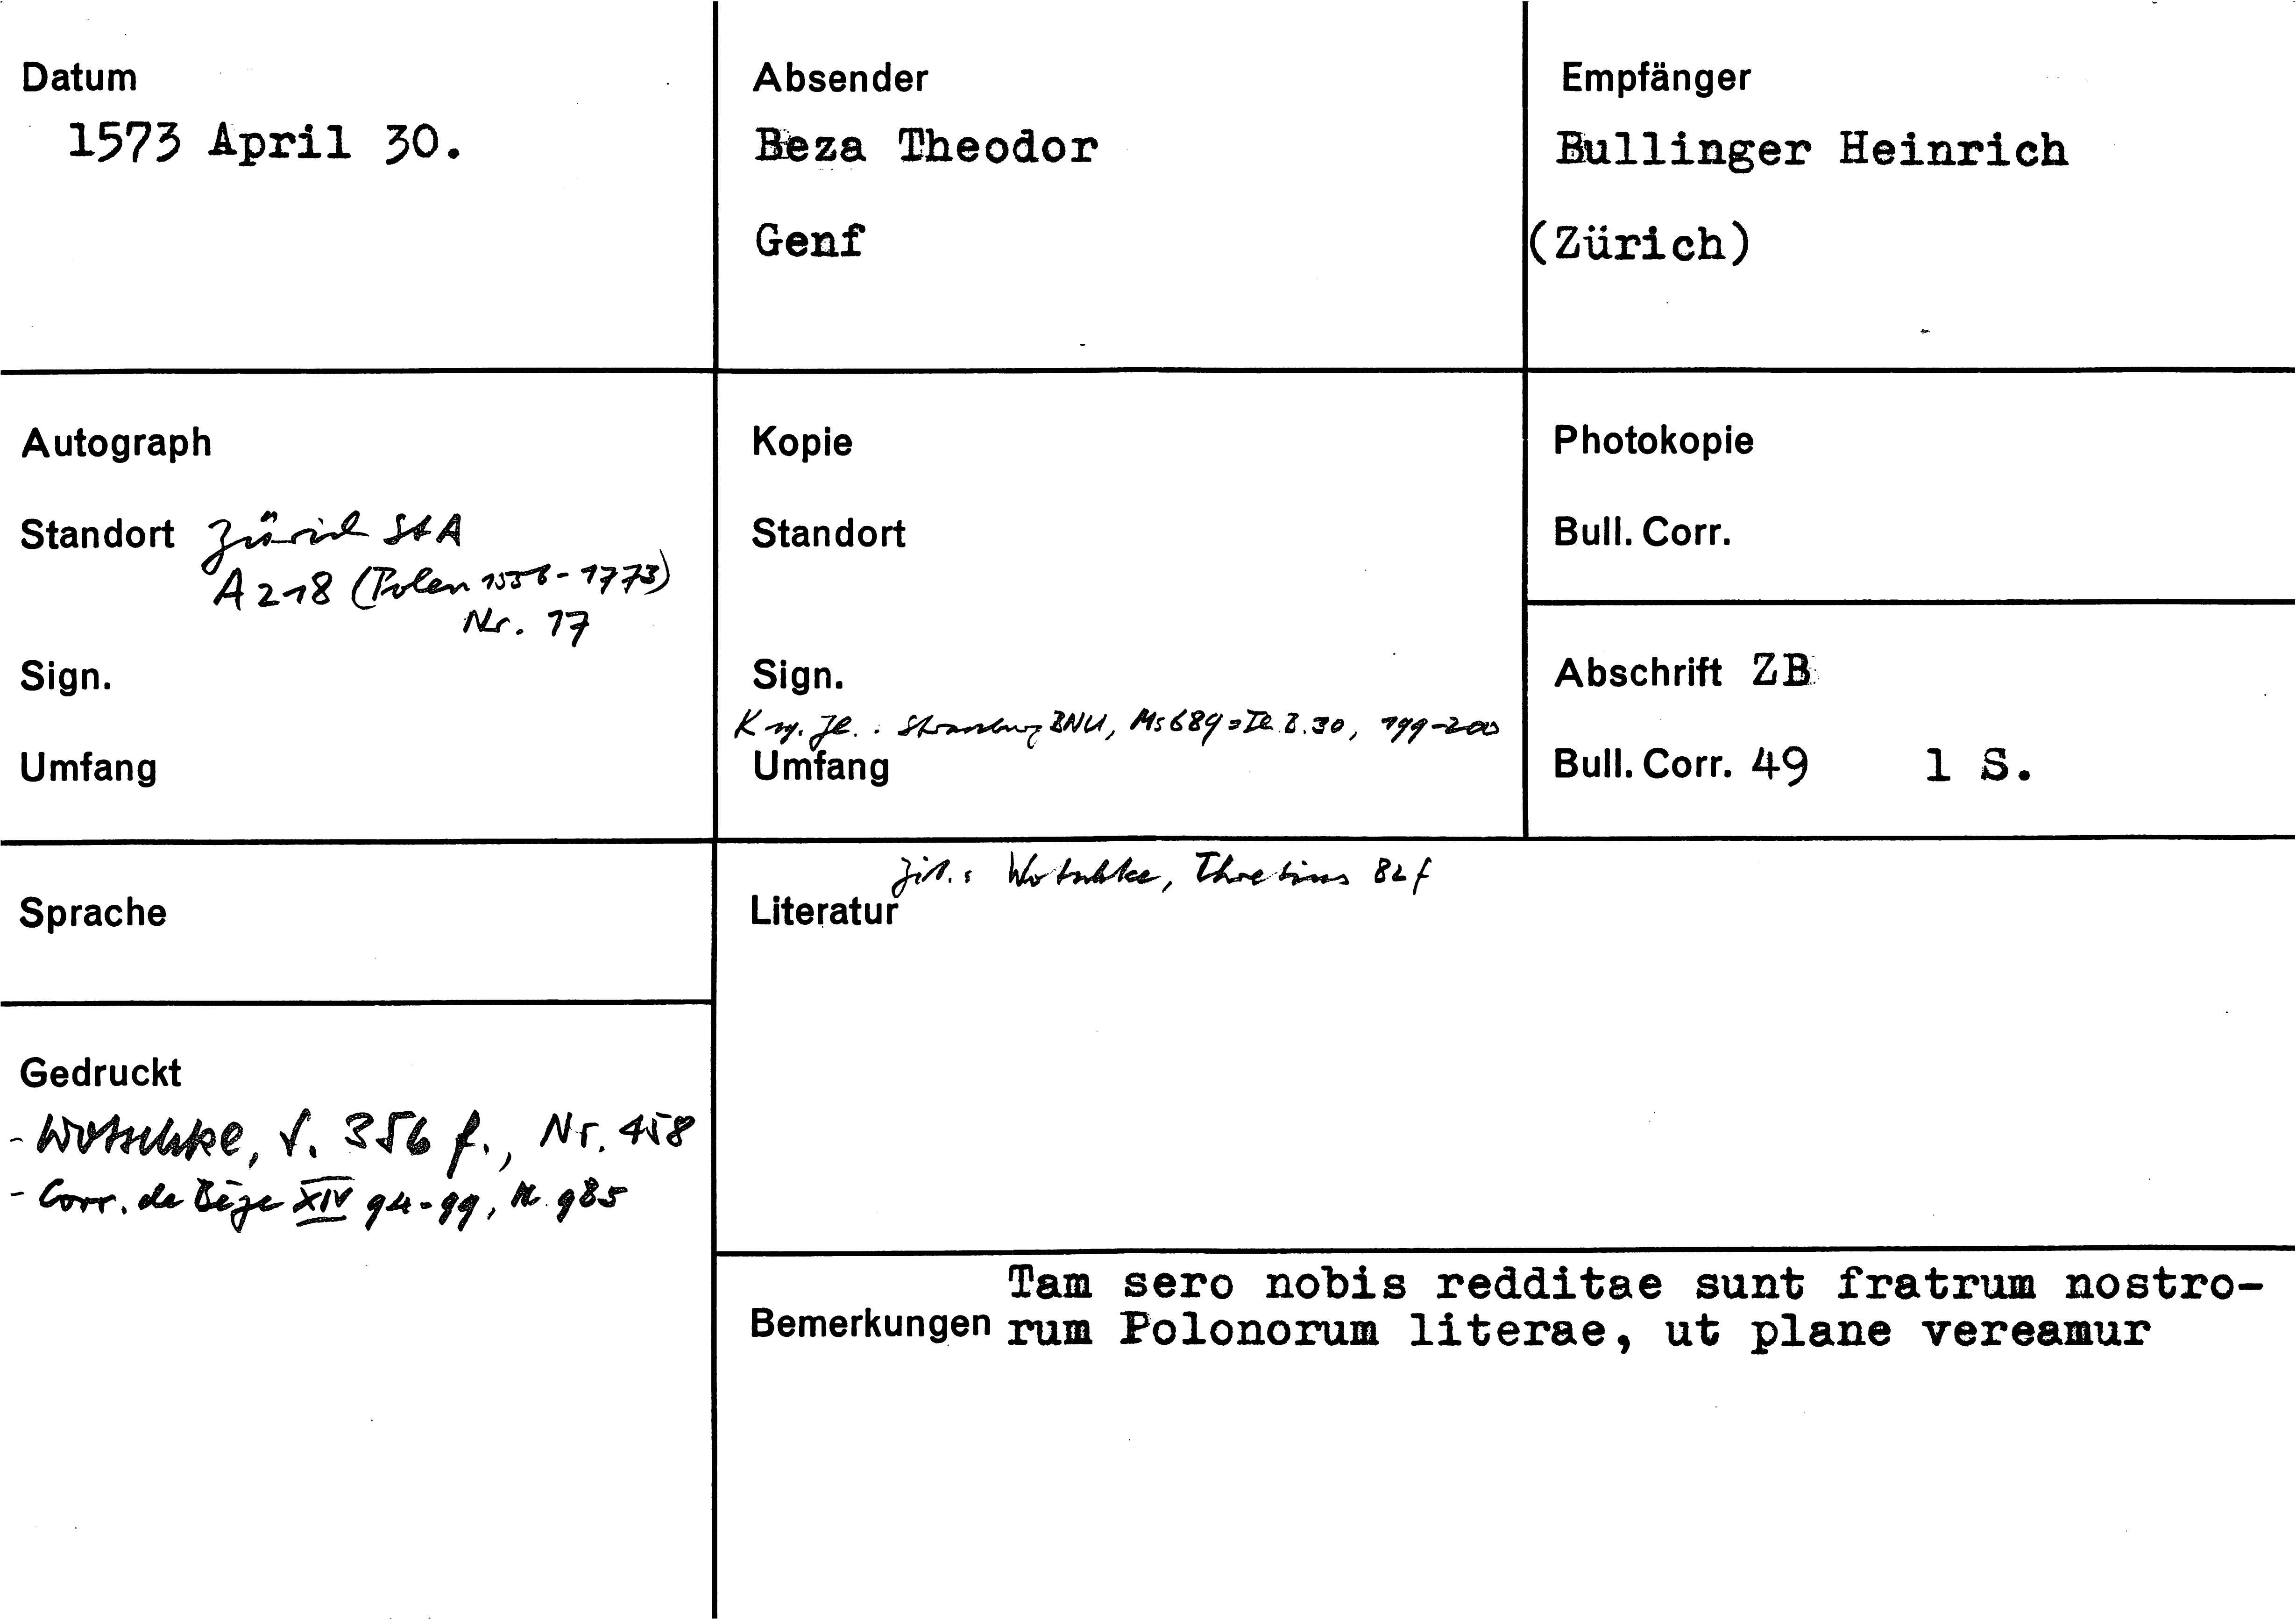 Datum
1573 April 30.
Absender
Beza Theodor
Genf
Empfänger
Bullinger Heinrich
(Zürich)
Autograph
Standort Zürich StA
A 218 (Polen 1556-1773)
Nr. 17
Sign.
Umfang
Kopie
Standort
Sign.
Strassburg BNU, Ms 689 = 199-200
Umfang
Photokopie
Bull. Corr.
Abschrift ZB
Bull. Corr. 49 1 S.
Sprache
Zit.: Wotschke, Thretius 82 f
Literatur
Gedruckt
- Wotschke, S. 356 f., Nr. 458
- Corr. de Bèze XIV 94-99, Nr. 985
Bemerkungen
Tam sero nobis redditae sunt fratrum nostro-
rum Polonorum literae, ut plane vereamur